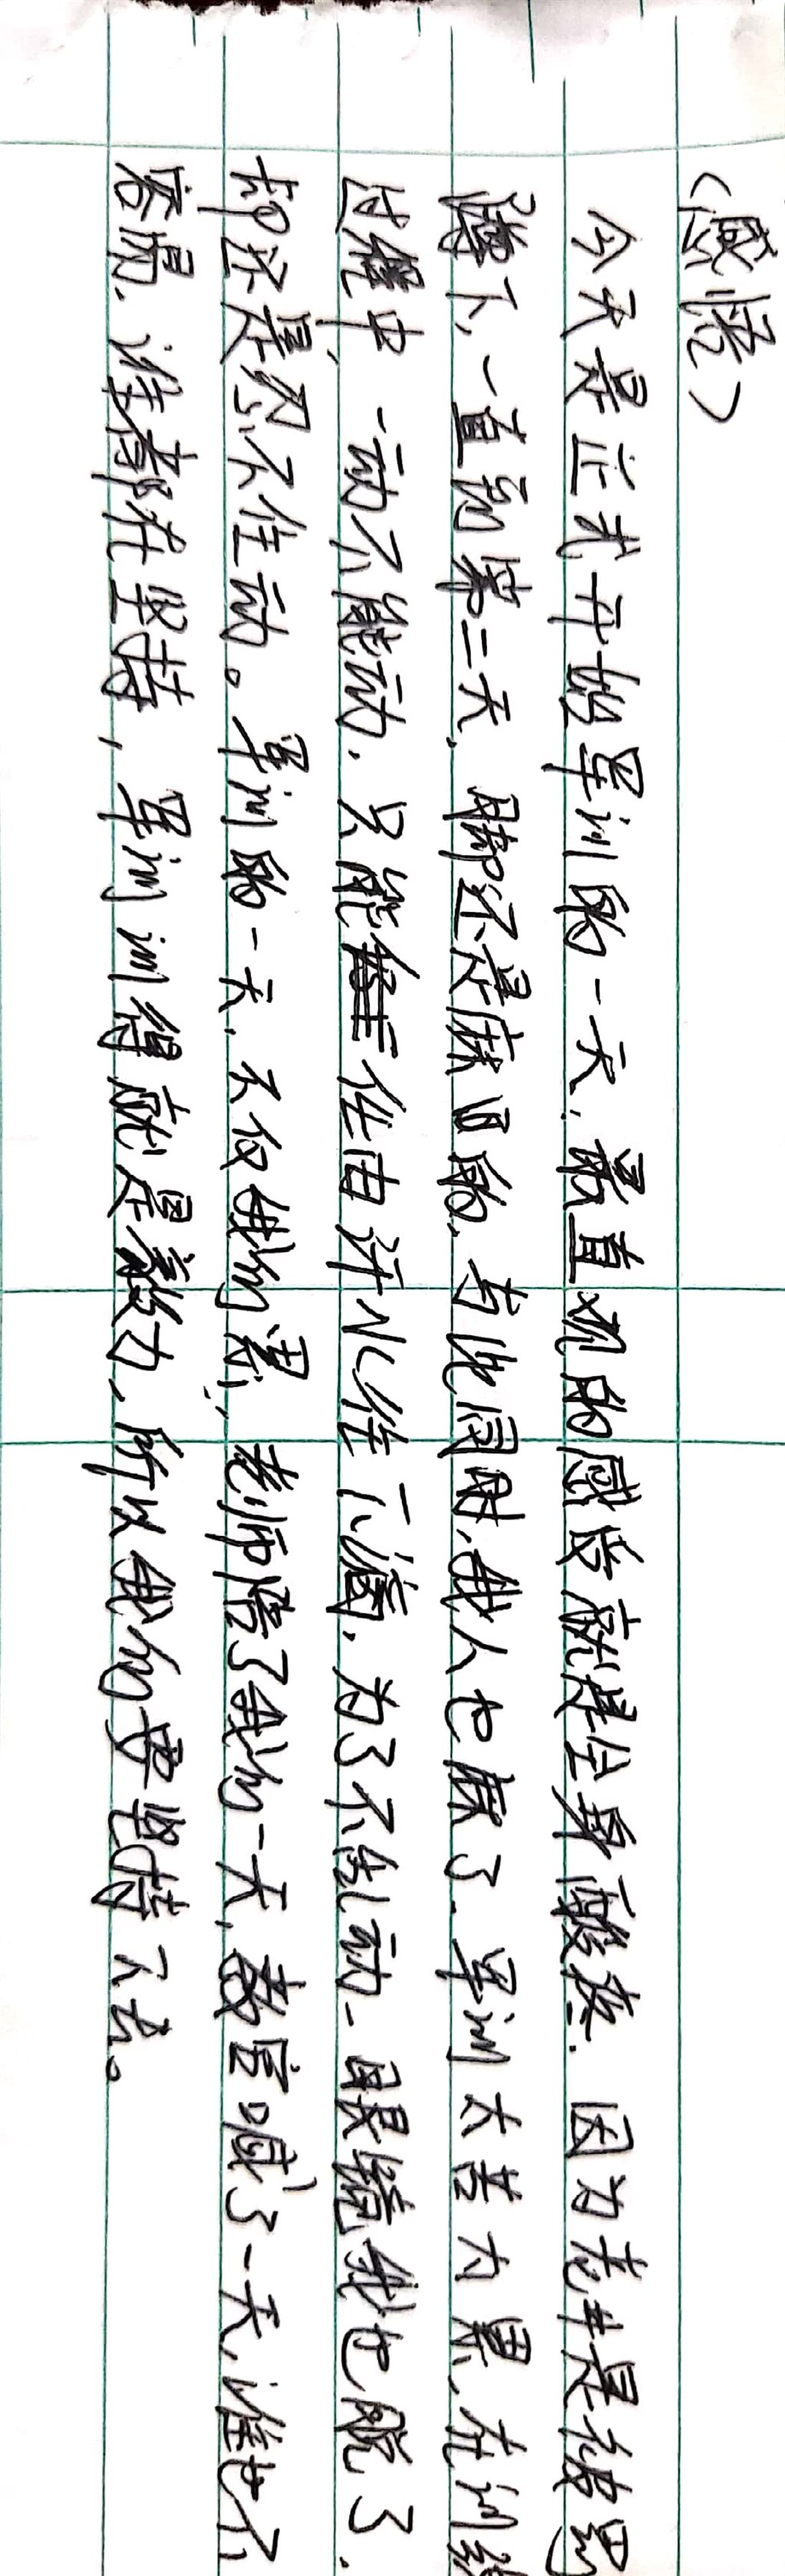 （感悟）
今天是正式开始军训的一天，最直观的感受就是全身酸疼，因为走井是很累
蹲下，一直到第二天，脚还是麻的，与此同时，我人也麻了，军训太苦太累，在训练
过程中，一动不能动，只能任由汗水往下滴，为了不乱动，眼镜我也脱了，
却还是忍不住动。军训的一天，不仅我们累，老师陪了我们一天，教官喊了一天，谁也不
容易，谁都在坚持，军训训得就是毅力，所以我们要坚持下去。